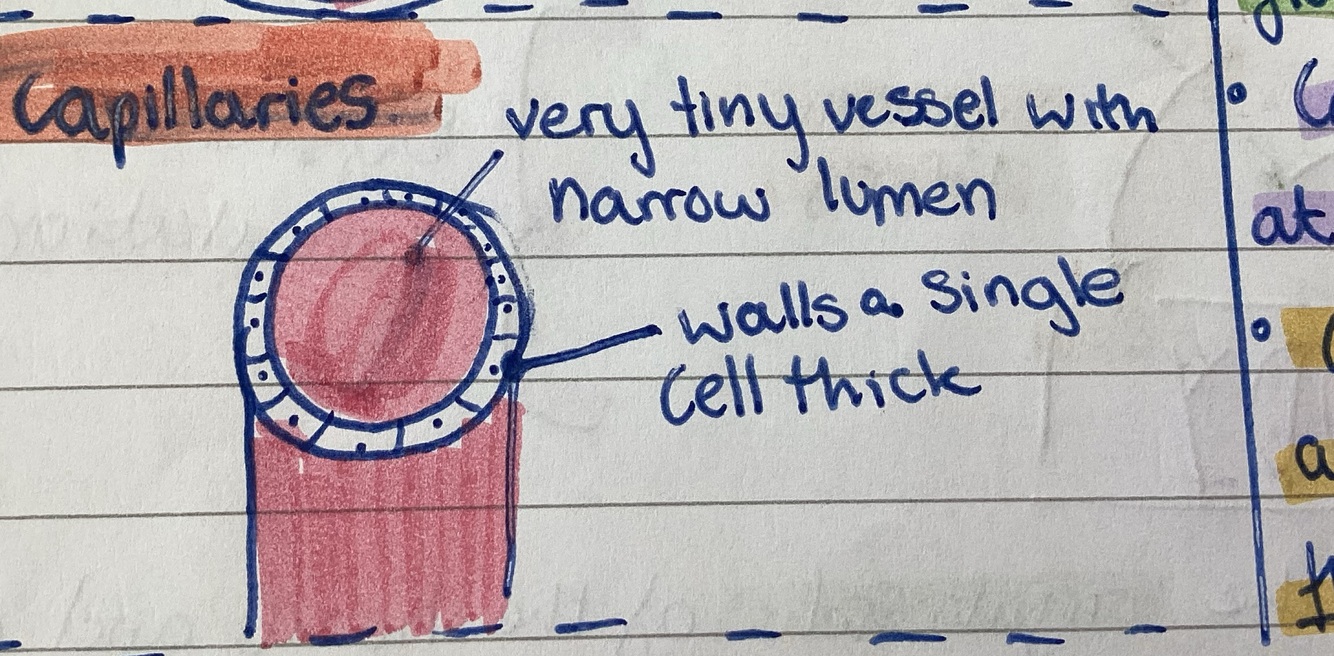 Capillaries.
very tiny vessel with
narrow lumen
walls a single
cell thick
at
a